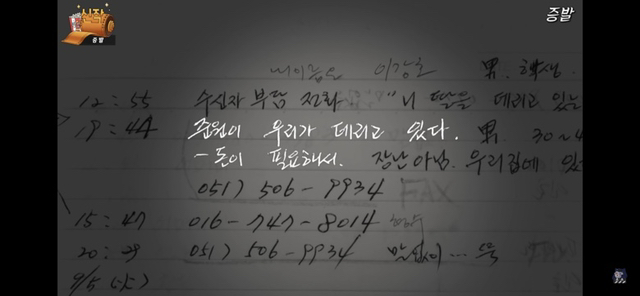 증발
증발
내이름은 이강호 男. 학생.
12:55 수신자 부담 전화 "니 딸을 데리고 있는
19:44 준원이 우리가 데리고 있다. 男. 30~4
- 돈이 필요해서. 장난 아님. 우리집에 있
051) 506-9934 FAX
15:47 016-747-8014
20:29 051) 506-9934 말없이… 뚝
9/5 (火)